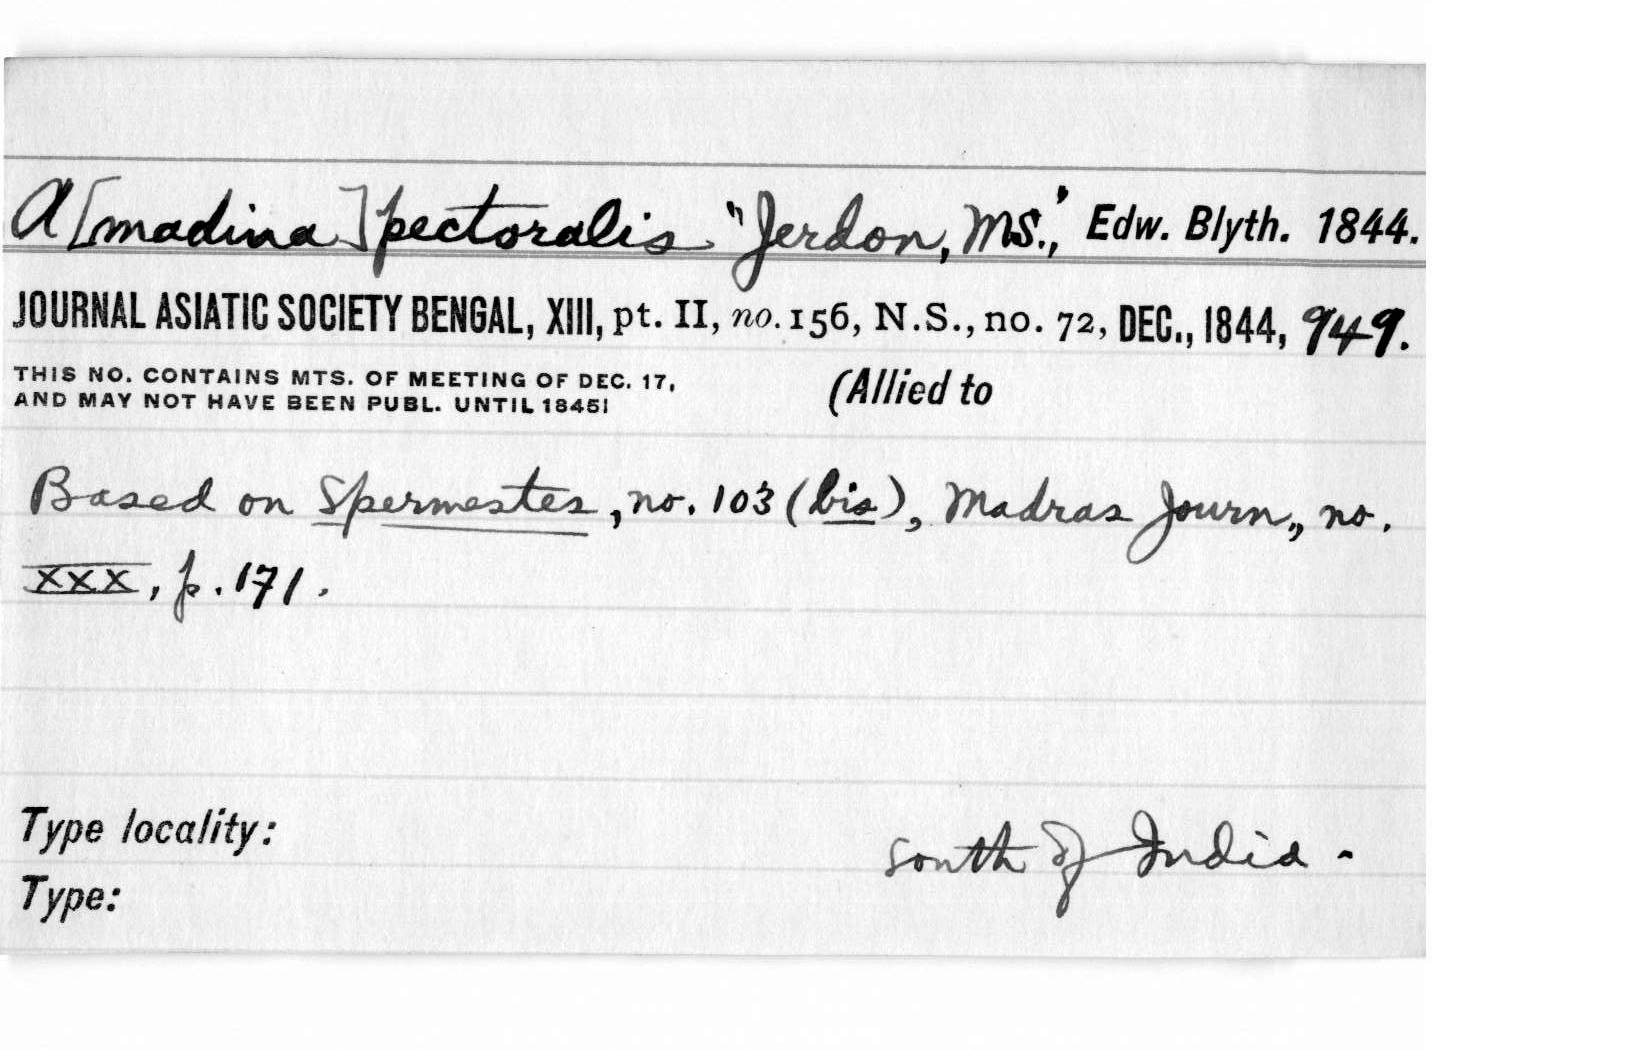 A[madina] pectoralis "Jerdon, MS.," Edw. Blyth. 1844.
JOURNAL ASIATIC SOCIETY BENGAL, XIII, pt. II, no. 156, N.S., no. 72, DEC., 1844, 949.
THIS NO. CONTAINS MTS. OF MEETING OF DEC. 17,
AND MAY NOT HAVE BEEN PUBL. UNTIL 1845!
(Allied to
Based on Spermestes, no. 103 (bis), Madras Journ., no.
XXX, p. 171.
Type locality:
south of India -
Type: